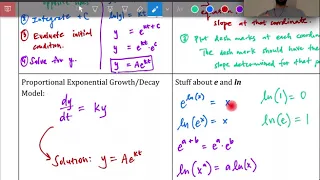 ② Integrate + C
ln(y) = kt + C
slope at that coordinate.
③ Evaluate initial condition.
y = e^{kt+C}
y = e^{kt} · e^C
④ Solve for y.
y = Ae^{kt}
② Put dash marks at each coordinate
The dash mark should have the
slope determined for that p
Proportional Exponential Growth/Decay
Model:
dy/dt = ky
Solution: y = Ae^{kt}
Stuff about e and ln
e^{ln(x)} = x
ln(1) = 0
ln(e^x) = x
ln(e) = 1
e^{a+b} = e^a · e^b
ln(x^a) = a ln(x)